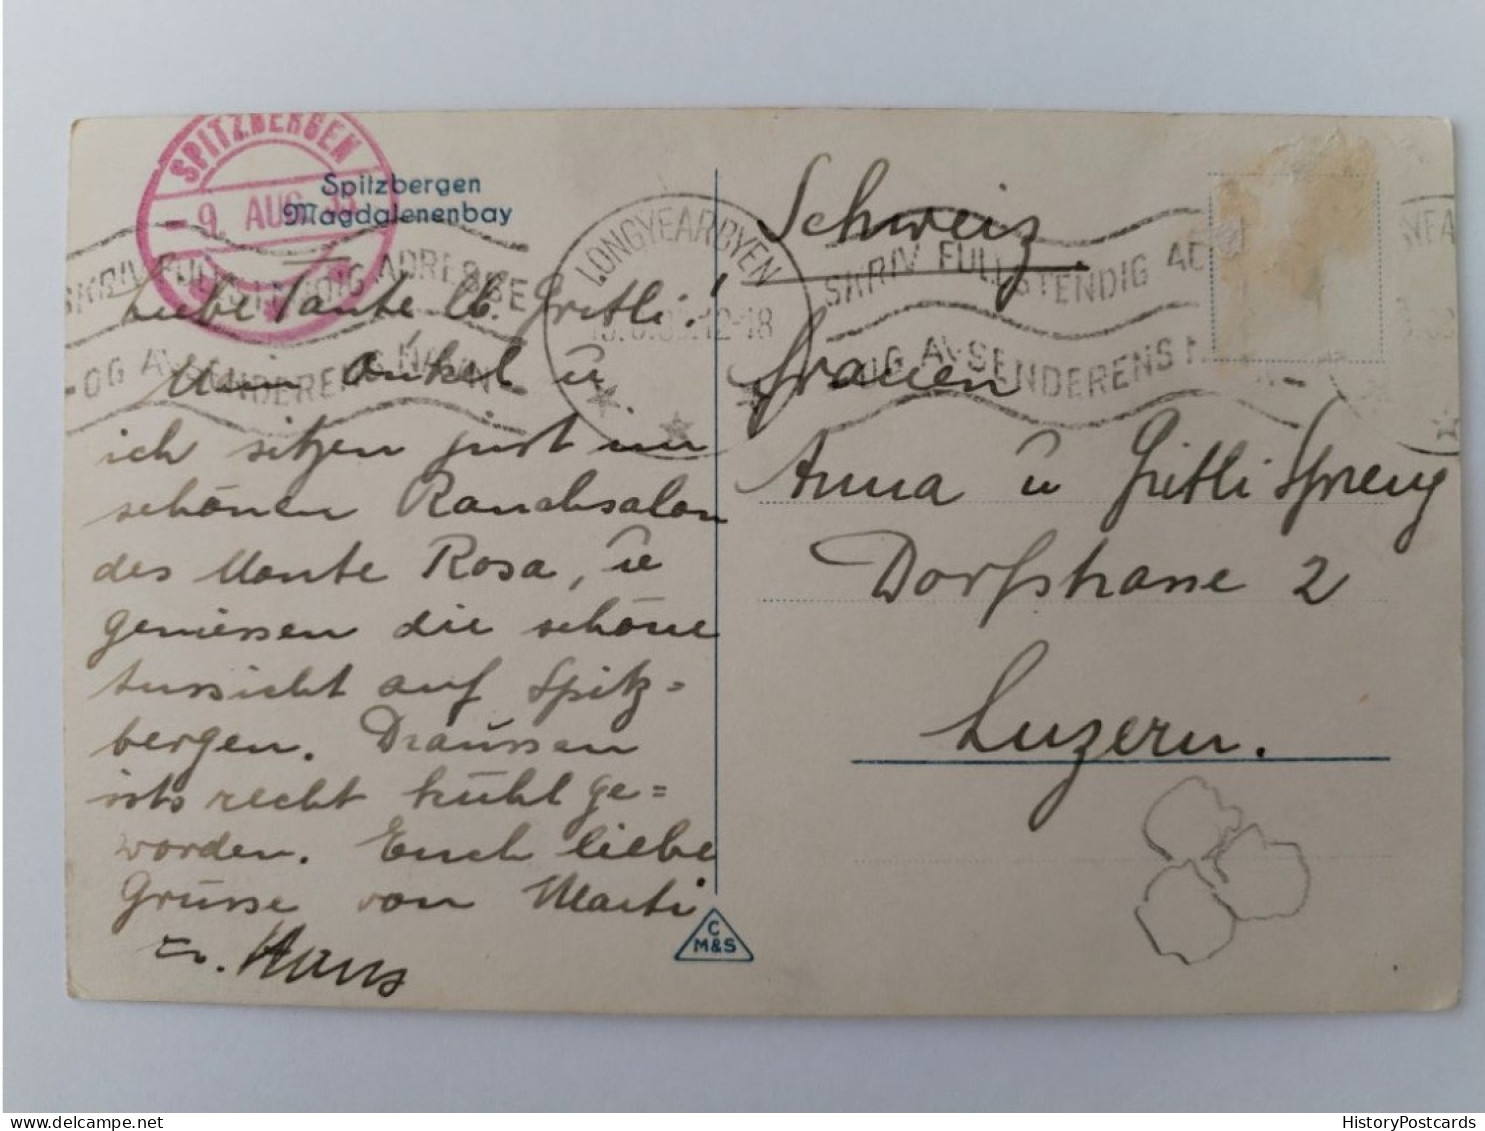 SPITZBERGEN
- 9. AUG. 35
Spitzbergen
Magdalenenbay
LONGYEARBYEN
12-18
SKRIV FULLSTENDIG ADRESSE
-OG AVSENDERENS NAVN
SKRIV FULLSTENDIG AD
OG AVSENDERENS N
Liebe Tante lb. Gritli!
Mein Onkel u.
ich sitzen just im
schönen Rauchsalon
des Monte Rosa, u
geniessen die schöne
Aussicht auf Spitz=
bergen. Draussen
ists recht kühl ge=
worden. Euch liebe
Grüsse von Marti
u. Hans
Schweiz.
Frauen
Anna u Gritli Spreng
Dorfstrasse 2
Luzern.
C
M&S
HistoryPostcards